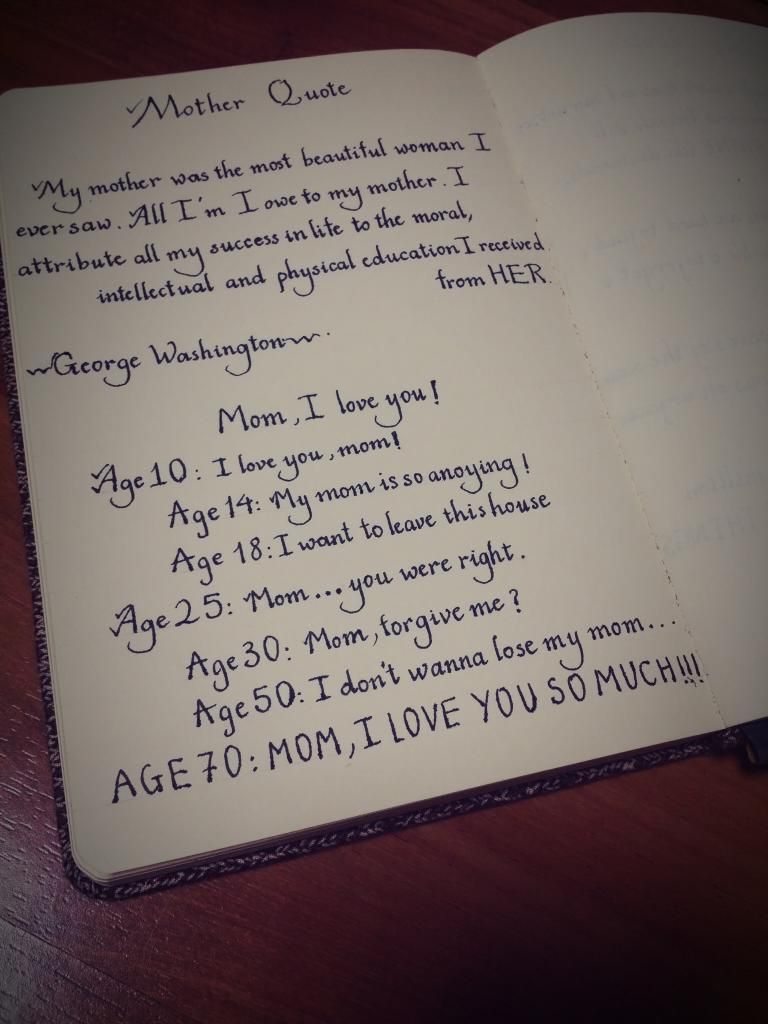 Mother Quote
My mother was the most beautiful woman I
ever saw. All I'm I owe to my mother. I
attribute all my success in life to the moral,
intellectual and physical education I received
from HER.
~George Washington~.
Mom, I love you!
Age 10: I love you, mom!
Age 14: My mom is so anoying!
Age 18: I want to leave this house
Age 25: Mom... you were right.
Age 30: Mom, forgive me?
Age 50: I don't wanna lose my mom...
AGE 70: MOM, I LOVE YOU SO MUCH!!!